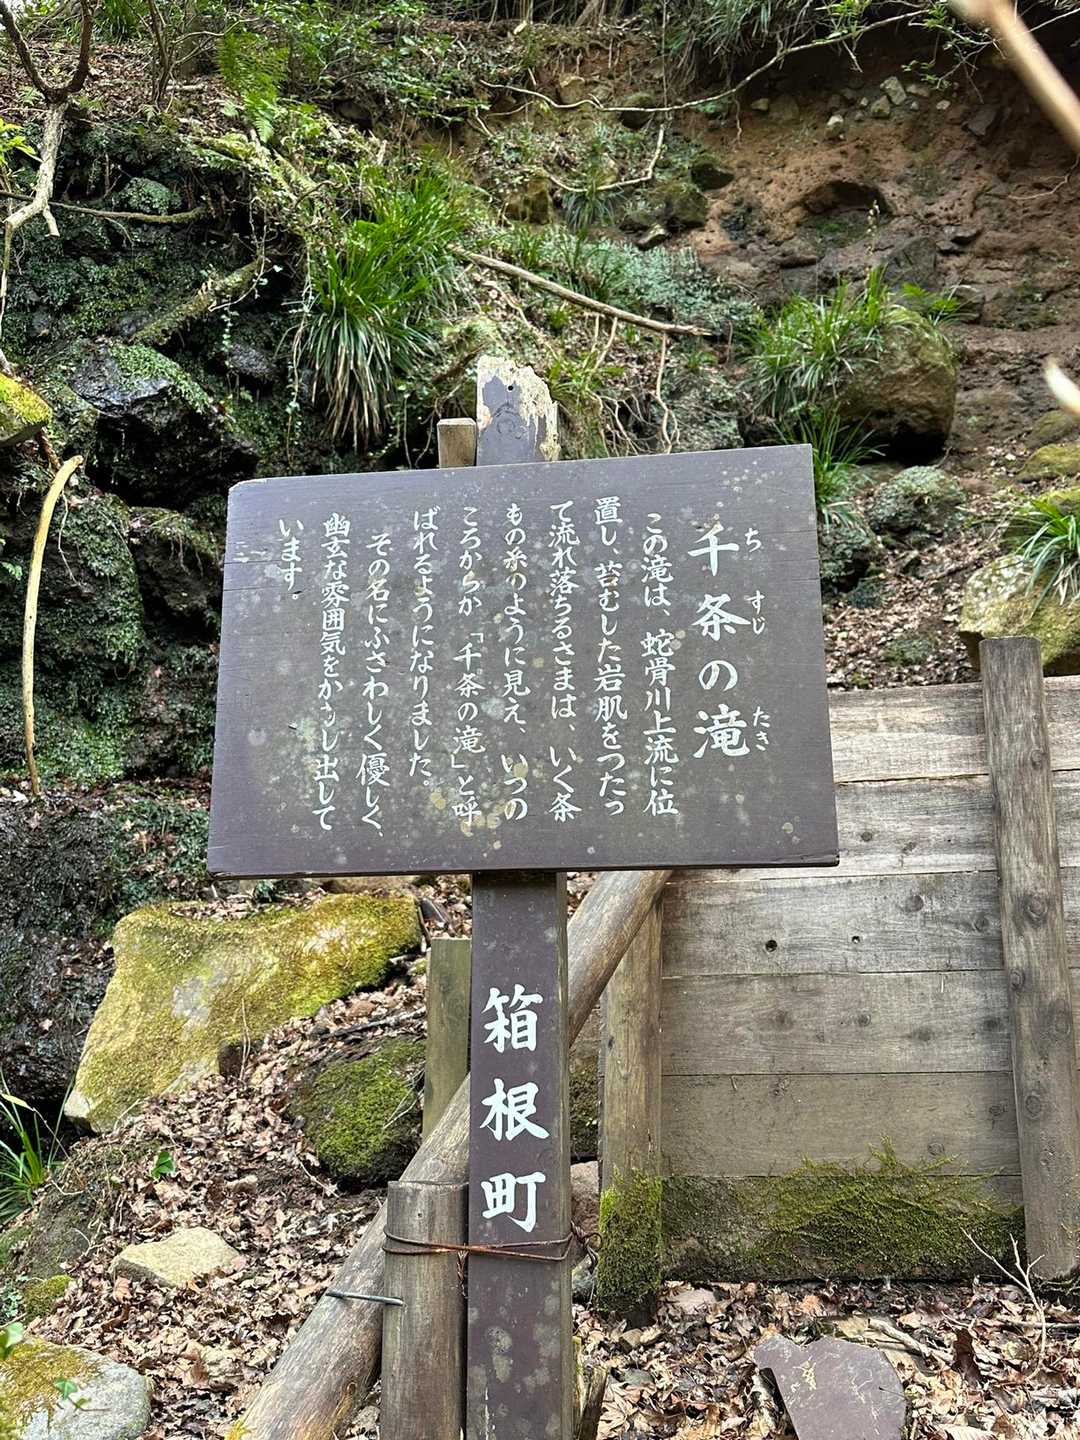 千条の滝
ち すじ たき
この滝は、蛇骨川上流に位
置し、苔むした岩肌をつたっ
て流れ落ちるさまは、いく条
もの糸のように見え、いつの
ころからか「千条の滝」と呼
ばれるようになりました。
その名にふさわしく優しく、
幽玄な雰囲気をかもし出して
います。
箱根町